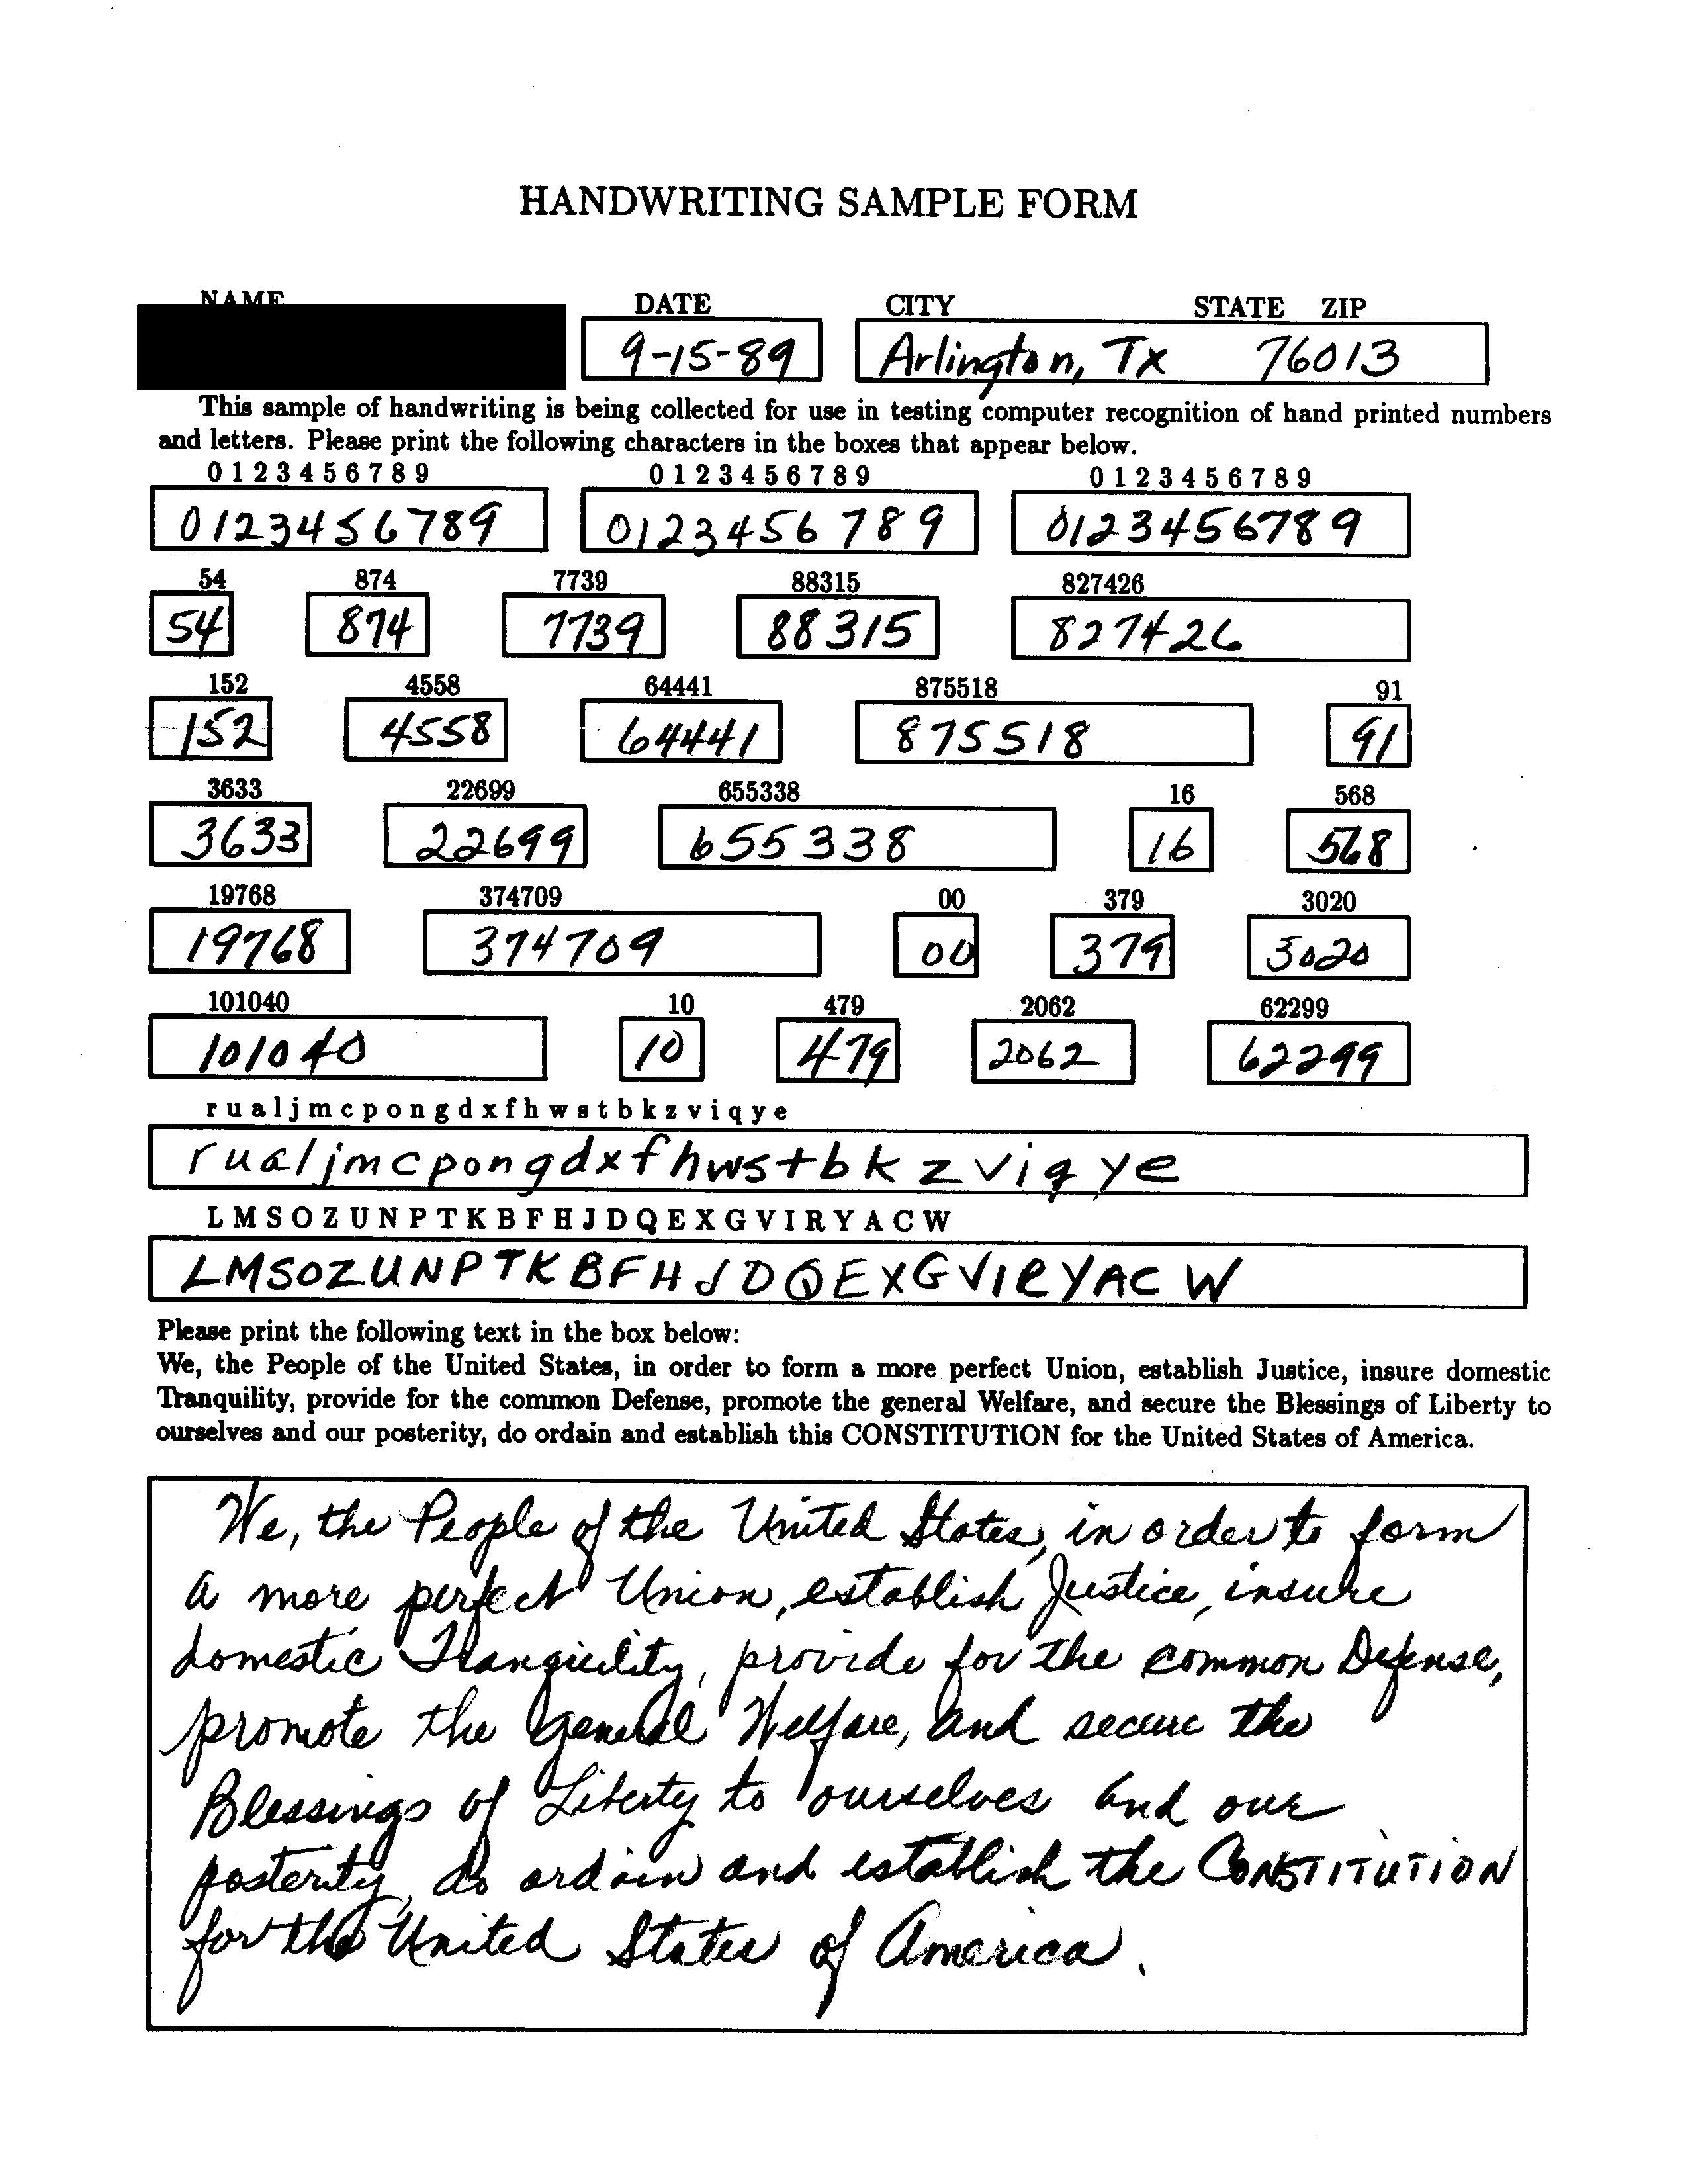 HANDWRITING SAMPLE FORM
NAME DATE CITY STATE ZIP
9-15-89 Arlington, Tx 76013
This sample of handwriting is being collected for use in testing computer recognition of hand printed numbers
and letters. Please print the following characters in the boxes that appear below.
0 1 2 3 4 5 6 7 8 9 0 1 2 3 4 5 6 7 8 9 0 1 2 3 4 5 6 7 8 9
0123456789 0123456789 0123456789
54 874 7739 88315 827426
54 874 7739 88315 827426
152 4558 64441 875518 91
152 4558 64441 875518 91
3633 22699 655338 16 568
3633 22699 655338 16 568
19768 374709 00 379 3020
19768 374709 00 379 3020
101040 10 479 2062 62299
101040 10 479 2062 62299
r u a l j m c p o n g d x f h w s t b k z v i q y e
rualjmcpongdxfhwstbkzviqye
L M S O Z U N P T K B F H J D Q E X G V I R Y A C W
LMSOZUNPTKBFHJDQEXGVIRYACW
Please print the following text in the box below:
We, the People of the United States, in order to form a more perfect Union, establish Justice, insure domestic
Tranquility, provide for the common Defense, promote the general Welfare, and secure the Blessings of Liberty to
ourselves and our posterity, do ordain and establish this CONSTITUTION for the United States of America.
We, the People of the United States, in order to form
a more perfect Union, establish Justice, insure
domestic Tranquility, provide for the common Defense,
promote the general Welfare, and secure the
Blessings of Liberty to ourselves and our
posterity, do ordain and establish the CONSTITUTION
for the United States of America.